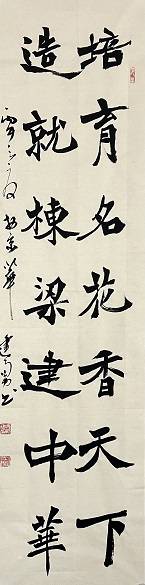 培育名花香天下
造就棟梁建中華